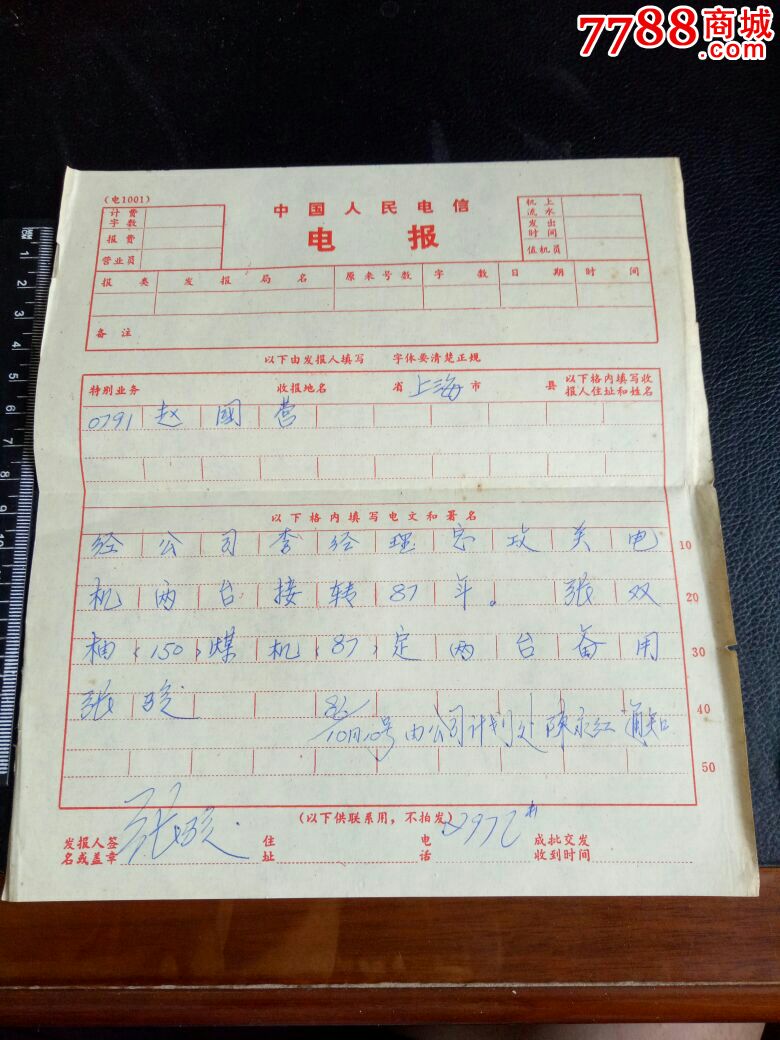 7788商城
.com
（电1001）
中国人民电信
电 报
计费字数
报费
营业员
机上流水
发出时间
值机员
报类 发报局名 原来号数 字数 日期 时间
备注
以下由发报人填写 字体要清楚正规
特别业务 收报地名 省 上海 市 县 以下格内填写收报人住址和姓名
0791 赵國营
以下格内填写电文和署名
经公司李经理忠攻关电 10
机两台接转87年。张双 20
柚〈150〉煤机〈87〉定两台备用 30
张骏 86/10月10号由公司计划处陈永红通知 40
50
（以下供联系用，不拍发）
发报人签名或盖章 张骏 住址 电话 成批交发收到时间